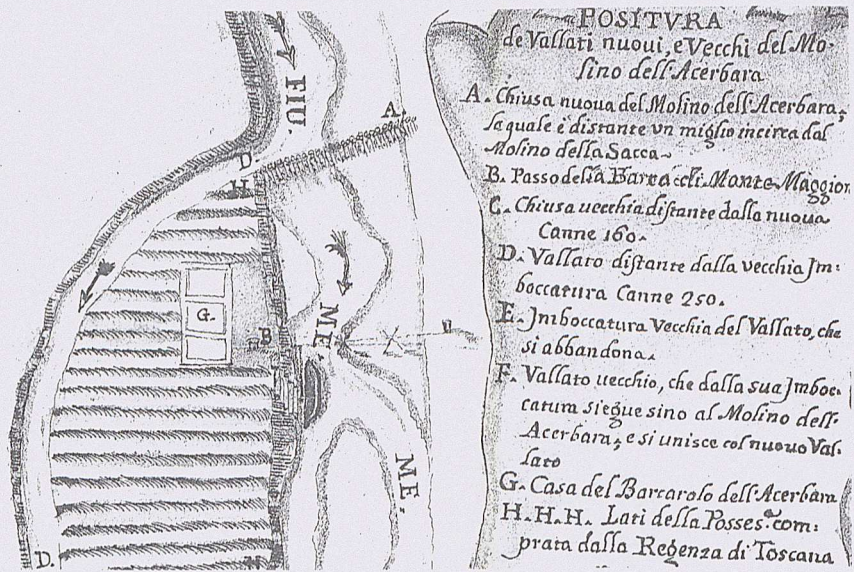 POSITVRA
de Vallati nuoui, e Vecchi del Mo-
lino dell'Acerbara
A. Chiusa nuoua del Molino dell'Acerbara,
la quale è distante vn miglio incirca dal
Molino della Sacca
B. Passo della Barca di Monte Maggior
C. Chiusa uecchia distante dalla nuoua
Canne 160.
D. Vallato distante dalla vecchia Im:
boccatura Canne 250.
E. Imboccatura Vecchia del Vallato, che
si abbandona.
F. Vallato uecchio, che dalla sua Imboc:
catura siegue sino al Molino dell'
Acerbara, e si unisce col nuouo Val:
lato
G. Casa del Barcarolo dell'Acerbara
H. H. H. Lati della Posses. com:
prata dalla Regenza di Toscana
FIU.
A.
D.
H.
ME.
G.
B
ME.
D.
H